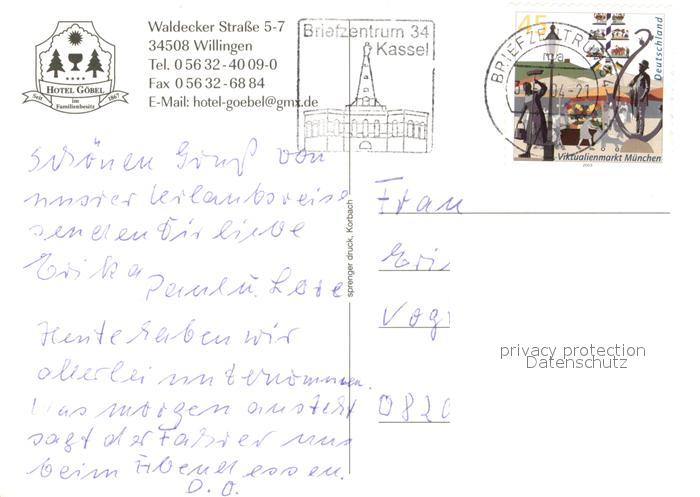 HOTEL GÖBEL
Seit im 1867
Familienbesitz
Waldecker Straße 5-7
34508 Willingen
Tel. 0 56 32 - 40 09-0
Fax 0 56 32 - 68 84
E-Mail: hotel-goebel@gmx.de
Briefzentrum 34
Kassel
BRIEFZENTRUM 34
ma
04-21
45
Deutschland
Viktualienmarkt München
2003
schönen Gruß von
unsrer Urlaubsreise
senden Dir liebe
Erika
Paul u. Lore
Heute haben wir
allerlei unternommen.
Was morgen ansteht
sagt der Fahrer uns
beim Abendessen.
D. O.
sprenger druck, Korbach
Frau
Eri
Vog
0820
privacy protection
Datenschutz